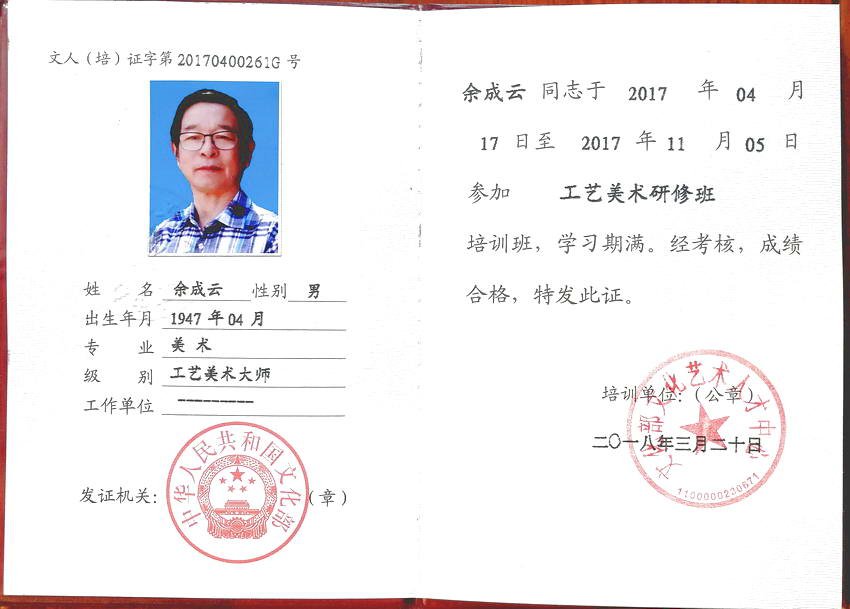 文人（培）证字第20170400261G号
姓 名 余成云 性别 男
出生年月 1947 年 04 月
专 业 美 术
级 别 工艺美术大师
工作单位 ---------
发证机关： （章）
中华人民共和国文化部
余成云 同志于 2017 年 04 月
17 日至 2017 年 11 月 05 日
参加 工艺美术研修班
培训班，学习期满。经考核，成绩
合格，特发此证。
培训单位：（公章）
二〇一八年三月二十日
文化部文化艺术人才中心
1100000230671